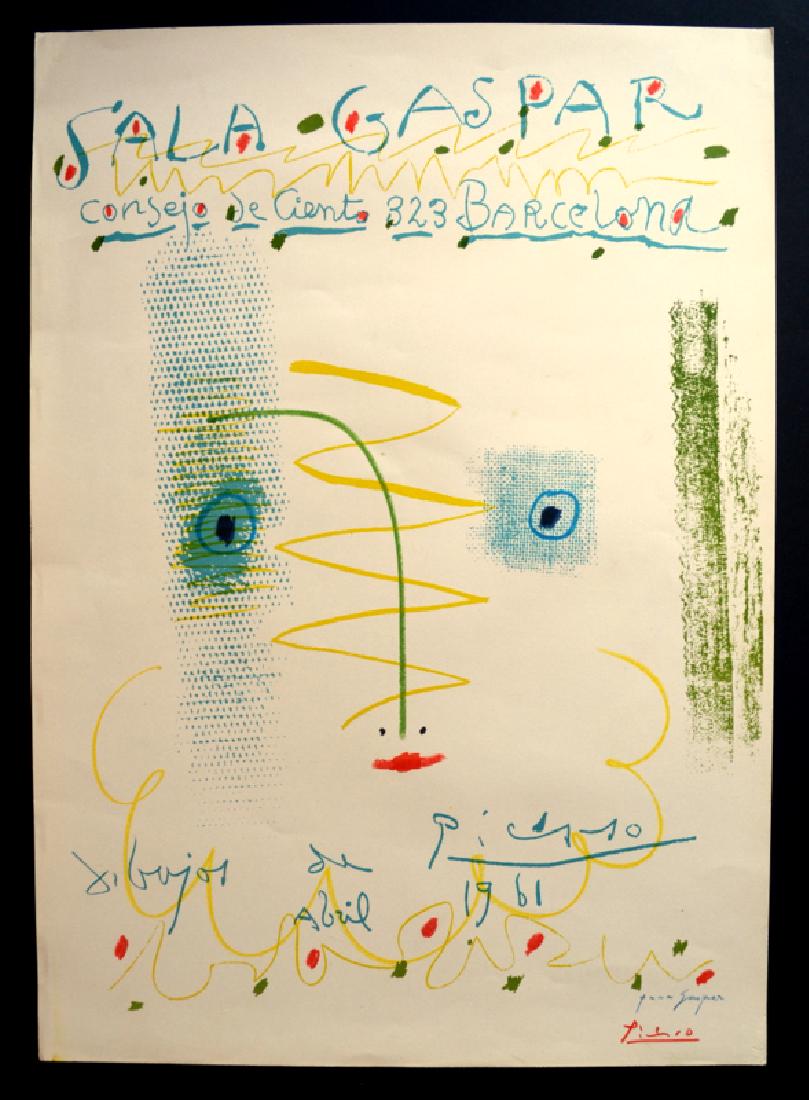 SALA GASPAR
consejo de Ciento 323 BARCelona
dibujos de Picasso
Abril 1961
para Gaspar
Picasso